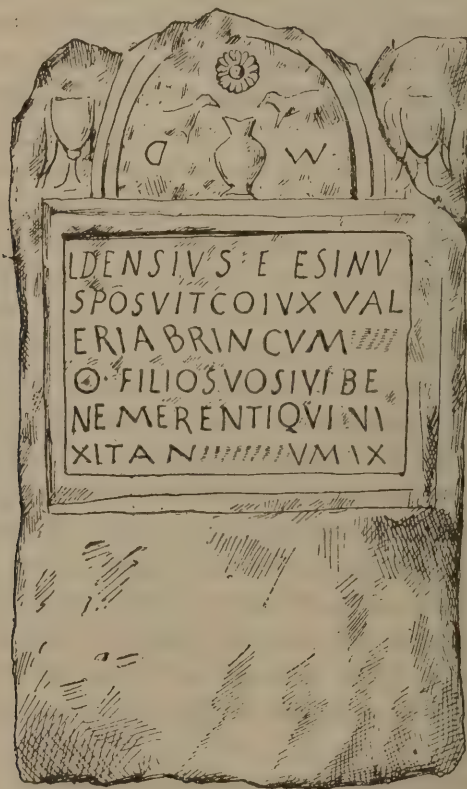 D M
LDENSIVS E ESINV
SPOSVITCOIVX VAL
ERIABRINCVM
Θ·FILIOSVOSIVI BE
NEMERENTIQVI VI
XITAN VMIX